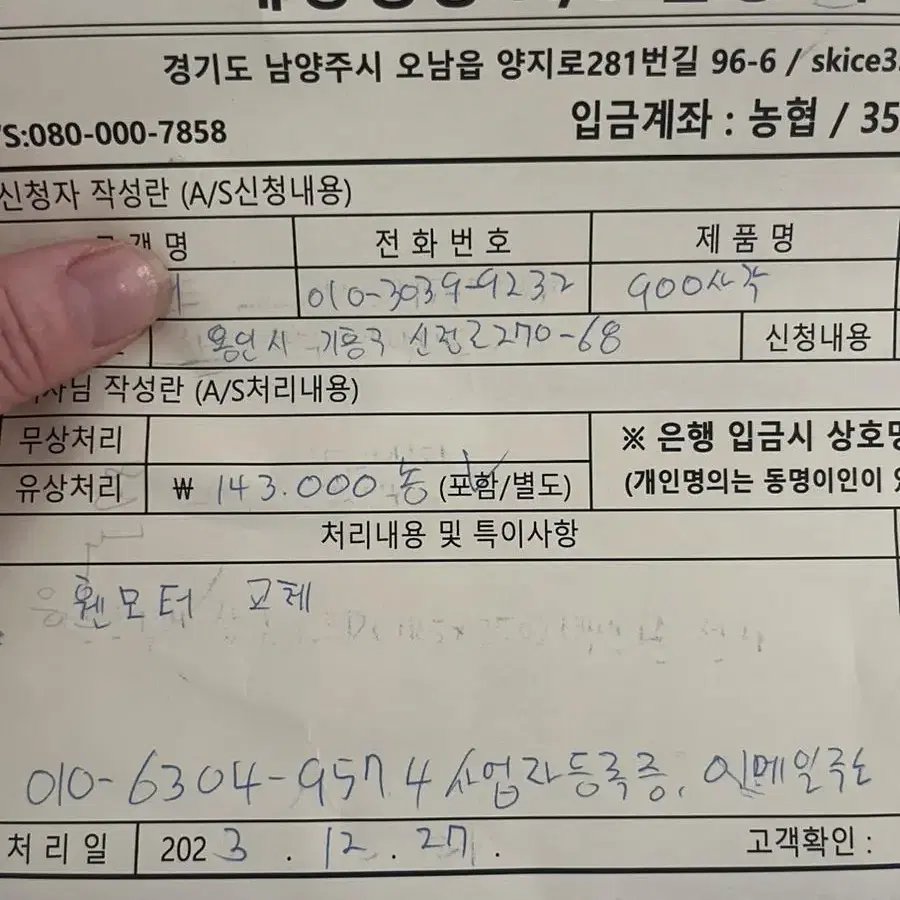 경기도 남양주시 오남읍 양지로281번길 96-6 / skice3
S:080-000-7858 입금계좌 : 농협 / 35
신청자 작성란 (A/S신청내용)
객 명 전 화 번 호 제 품 명
010-3039-9232 900사각
용인시 기흥구 신정로270-68 신청내용
사님 작성란 (A/S처리내용)
무상처리 ※ 은행 입금시 상호명
유상처리 ₩ 143.000 농 (포함/별도) (개인명의는 동명이인이 있
처리내용 및 특이사항
휀모터 교체
010-6304-9574 사업자등록증, 이메일주소
처 리 일 2023 . 12 . 27 . 고객확인 :